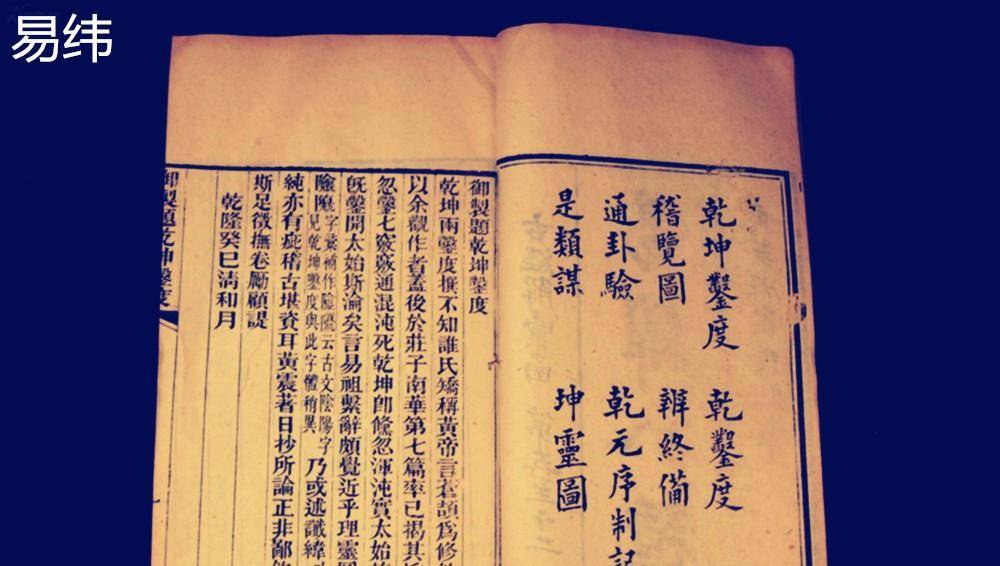 易纬
乾坤鑿度 乾鑿度
稽覽圖 辨終備
通卦驗 乾元序制記
是類謀 坤靈圖
御製題乾坤鑿度
乾坤兩鑿度撰不知誰氏矯稱黃帝言蒼頡爲修
以余觀作者蓋後於莊子南華第七篇率已揭其
忽鑿七竅竅通混沌死乾坤卽儵忽渾沌實太始
旣鑿開太始斯淪矣言易祖繫辭頗覺近乎理靈
字彙補作 云古文陰陽字
見乾坤鑿度與此字體稍異
乃或述讖緯
純亦有疵稽古堪資耳黃震者日抄所論正非鄙
斯足徵撫卷勵顧諟
乾隆癸巳清和月
御製題乾坤鑿度